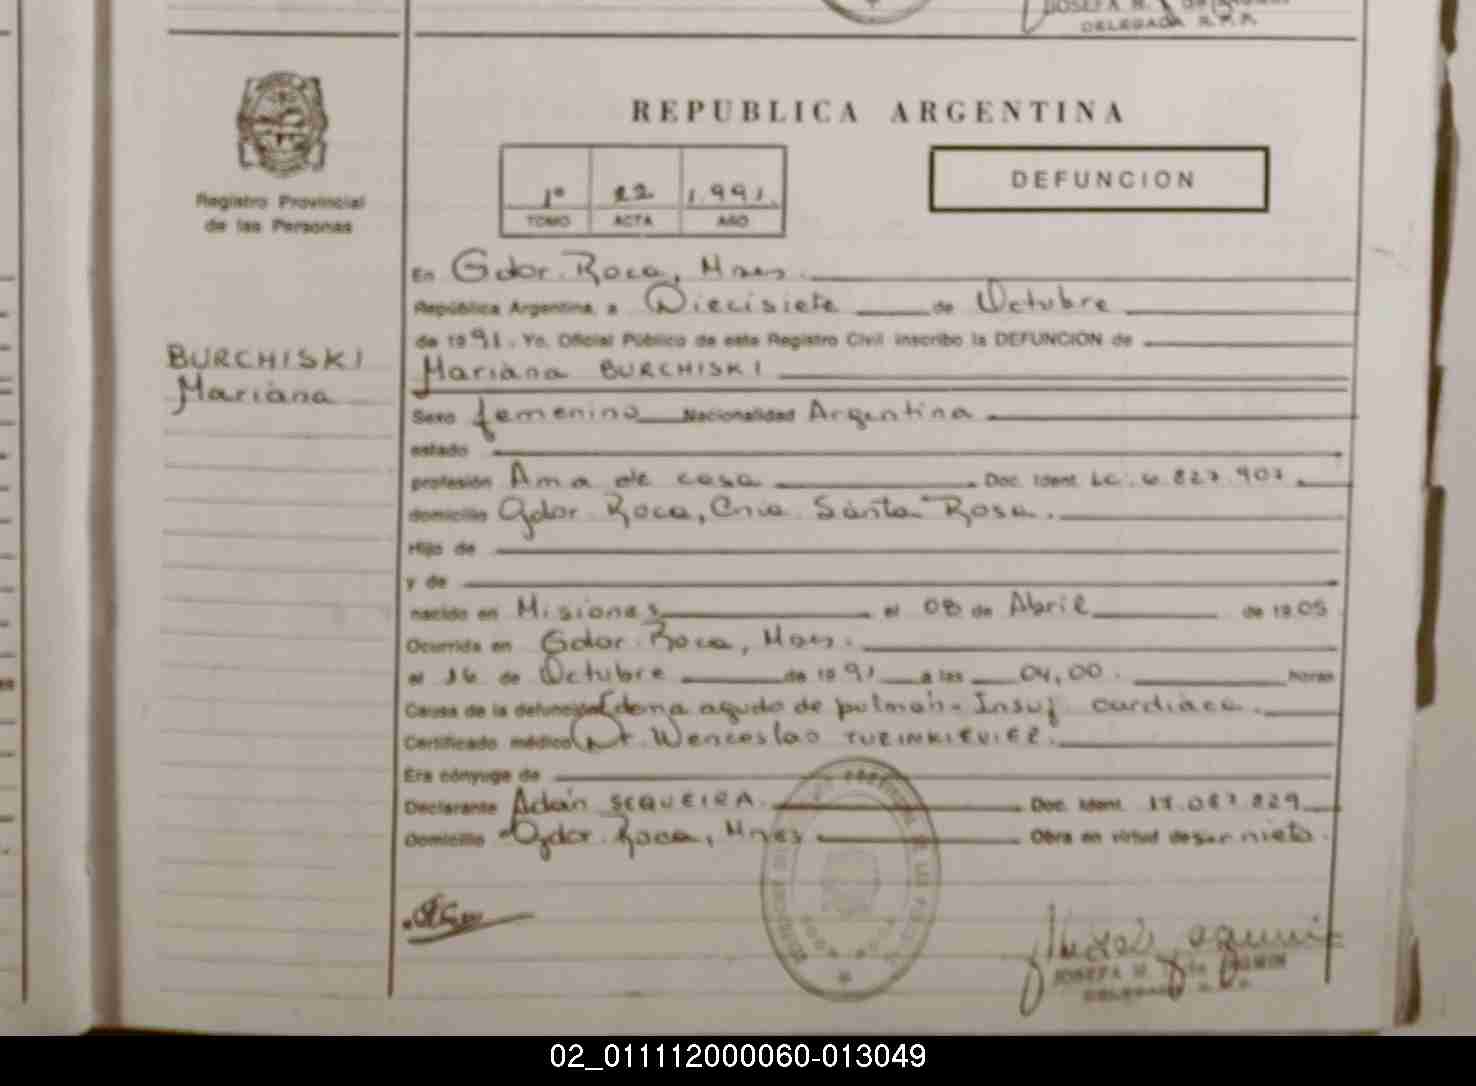 JOSEFA M.
DELEGADA R.P.P.
REPUBLICA ARGENTINA
1º 22 1.991.
TOMO ACTA AÑO
DEFUNCION
Registro Provincial
de las Personas
En Gdor. Roca, Mnes.
República Argentina, a Diecisiete de Octubre
de 1991. Yo, Oficial Público de este Registro Civil inscribo la DEFUNCION de
BURCHISKI
Mariana
Mariana BURCHISKI
Sexo femenino Nacionalidad Argentina
estado
profesión Ama de casa Doc. Ident. LC. 6.827.907.
domicilio Gdor. Roca, Cnia. Santa Rosa.
Hijo de
y de
nacido en Misiones el 08 de Abril de 1905
Ocurrida en Gdor. Roca, Mnes.
el 16 de Octubre de 1991 a las 04,00. horas
Causa de la defunción Edema agudo de pulmón - Insuf cardiaca.
Certificado médico Dr. Wenceslao TUZINKIEVIEZ.
Era cónyuge de
Declarante Adán SEQUEIRA. Doc. Ident. 17.087.829
Domicilio Gdor. Roca, Mnes Obra en virtud de ser nieto.
JOSEFA M.
DELEGADA R.P.P.
02_011112000060-013049